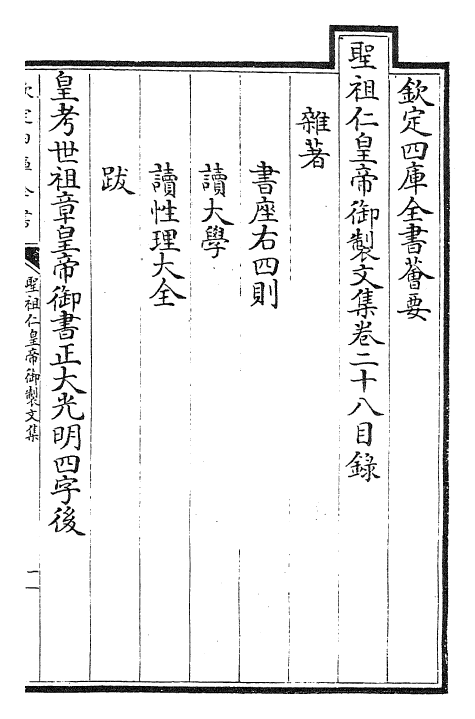 欽定四庫全書薈要
聖祖仁皇帝御製文集卷二十八目錄
雜著
書座右四則
讀大學
讀性理大全
跋
皇考世祖章皇帝御書正大光明四字後
聖祖仁皇帝御製文集
一